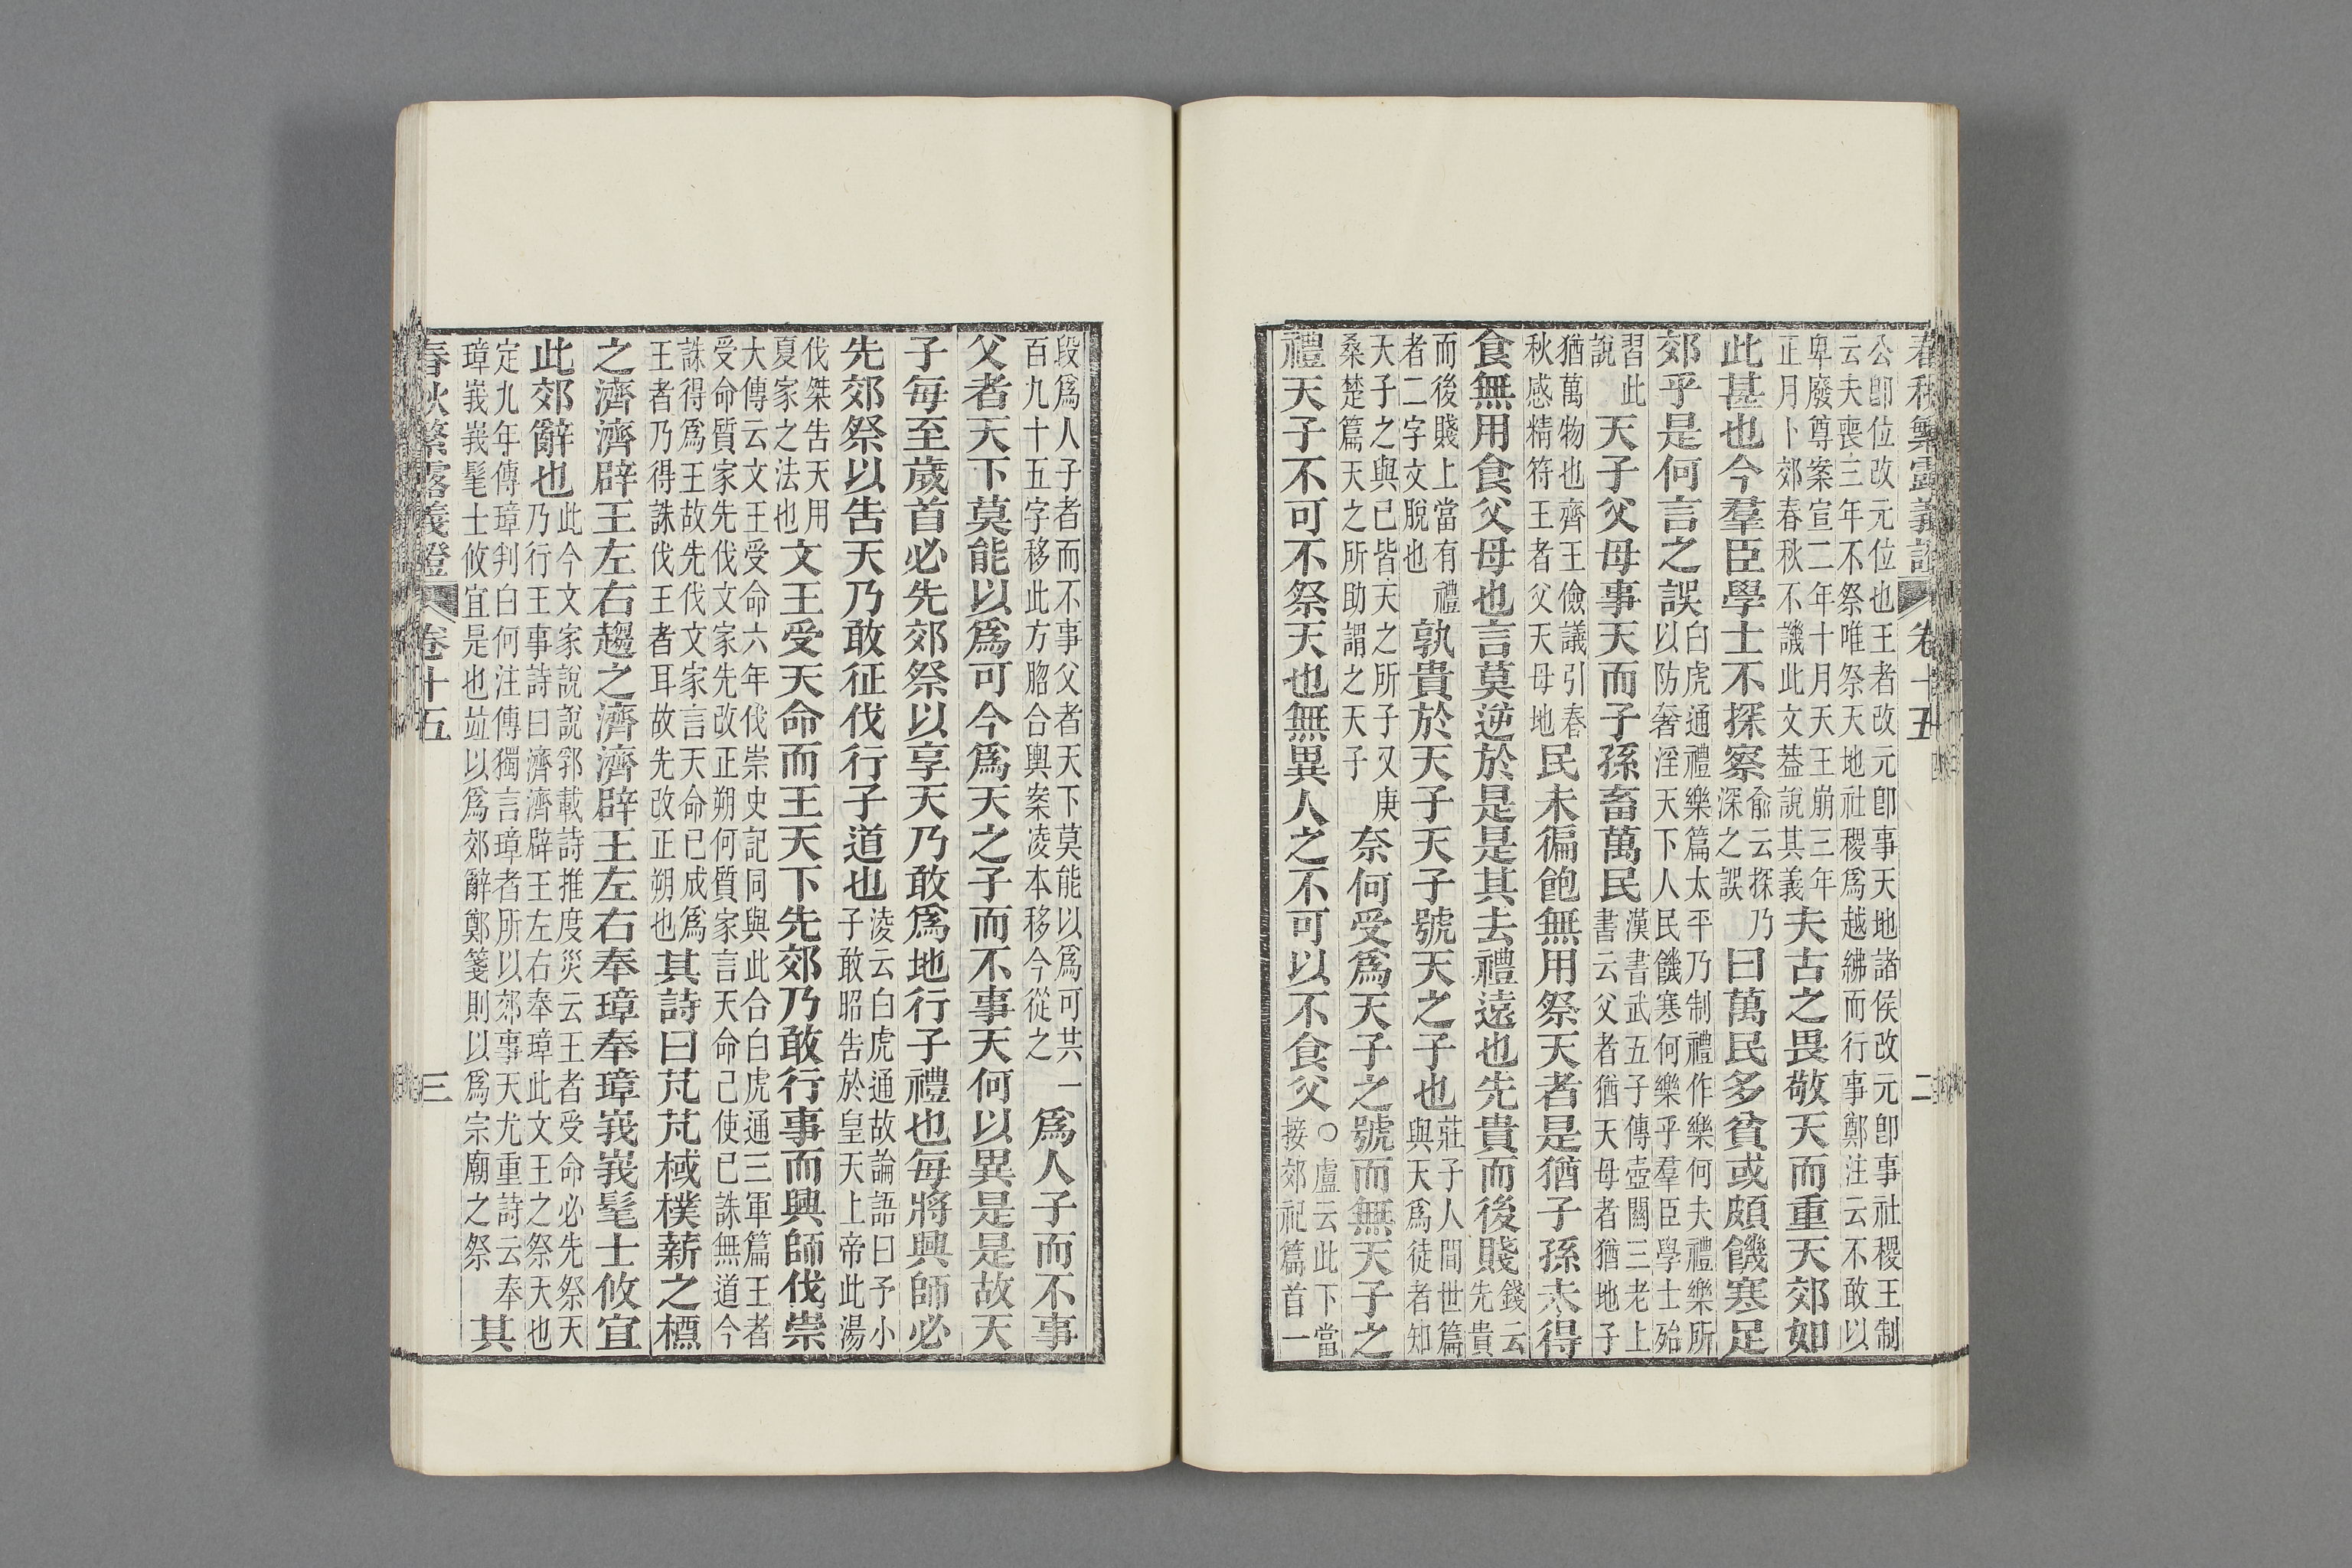 春秋繁露義證 卷十五 二
公卽位改元位也王者改元卽事天地諸侯改元卽事社稷王制
云夫喪三年不祭唯祭天地社稷爲越紼而行事鄭注云不敢以
卑廢尊案宣二年十月天王崩三年
正月卜郊春秋不譏此文葢說其義夫古之畏敬天而重天郊如
此甚也今羣臣學士不探察俞云探乃深之誤曰萬民多貧或頗饑寒足
郊乎是何言之誤白虎通禮樂篇太平乃制禮作樂何夫禮樂所
以防奢淫天下人民饑寒何樂乎羣臣學士殆
習此說天子父母事天而子孫畜萬民漢書武五子傳壺關三老上
書云父者猶天母者猶地子
猶萬物也齊王儉議引春
秋感精符王者父天母地民未徧飽無用祭天者是猶子孫未得
食無用食父母也言莫逆於是是其去禮遠也先貴而後賤錢云先貴
而後賤上當有禮
者二字文脫也孰貴於天子天子號天之子也莊子人間世篇
與天爲徒者知
天子之與己皆天之所子又庚
桑楚篇天之所助謂之天子奈何受爲天子之號而無天子之
禮天子不可不祭天也無異人之不可以不食父○盧云此下當
接郊祀篇首一
段爲人子者而不事父者天下莫能以爲可共一
百九十五字移此方脗合輿案凌本移今從之爲人子而不事
父者天下莫能以爲可今爲天之子而不事天何以異是是故天
子每至歲首必先郊祭以享天乃敢爲地行子禮也每將興師必
先郊祭以告天乃敢征伐行子道也淩云白虎通故論語曰予小
子敢昭告於皇天上帝此湯
伐桀告天用
夏家之法也文王受天命而王天下先郊乃敢行事而興師伐崇
大傳云文王受命六年伐崇史記同與此合白虎通三軍篇王者
受命質家先伐文家先改正朔何質家言天命己使已誅無道今
誅得爲王故先伐文家言天命已成爲
王者乃得誅伐王者耳故先改正朔也其詩曰芃芃棫樸薪之槱
之濟濟辟王左右趨之濟濟辟王左右奉璋奉璋峩峩髦士攸宜
此郊辭也此今文家說說郛載詩推度災云王者受命必先祭天
乃行王事詩曰濟濟辟王左右奉璋此文王之祭天也
定九年傳璋判白何注傳獨言璋者所以郊事天尤重詩云奉
璋峩峩髦士攸宜是也竝以爲郊辭鄭箋則以爲宗廟之祭其
春秋繁露義證 卷十五 三